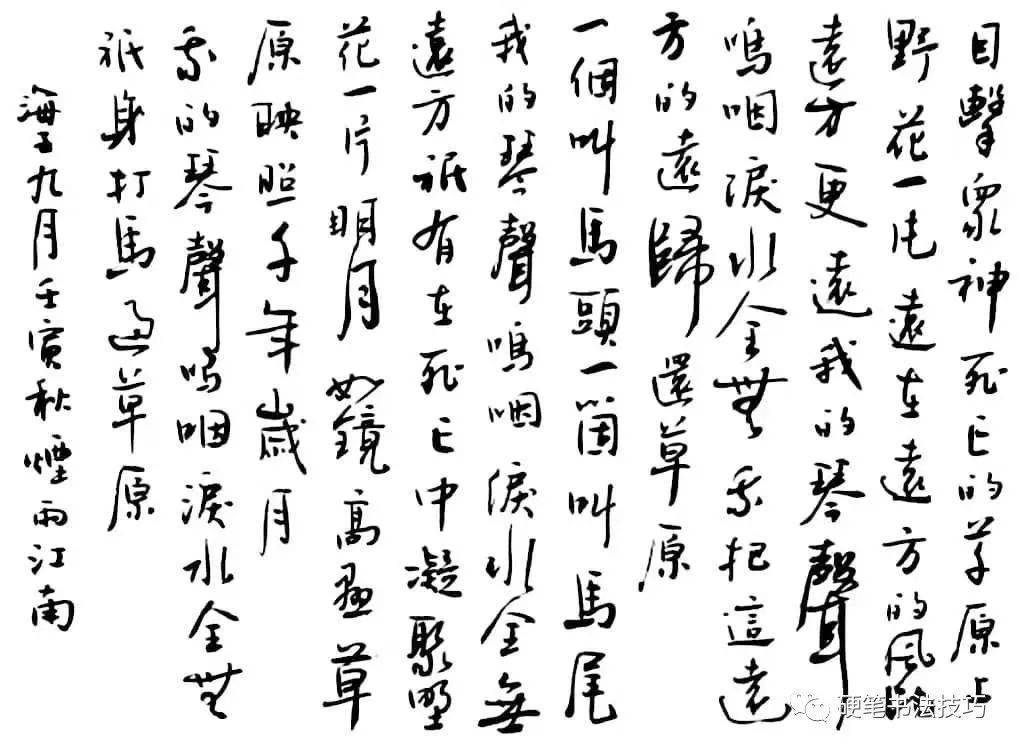 目擊眾神死亡的草原上
野花一片遠在遠方的風比
遠方更遠我的琴聲
嗚咽淚水全無我把這遠
方的遠歸還草原
一個叫馬頭一箇叫馬尾
我的琴聲嗚咽淚水全無
遠方祇有在死亡中凝聚野
花一片明月如鏡高懸草
原映照千年歲月
我的琴聲嗚咽淚水全無
祇身打馬過草原
海子九月壬寅秋煙雨江南
硬笔书法技巧